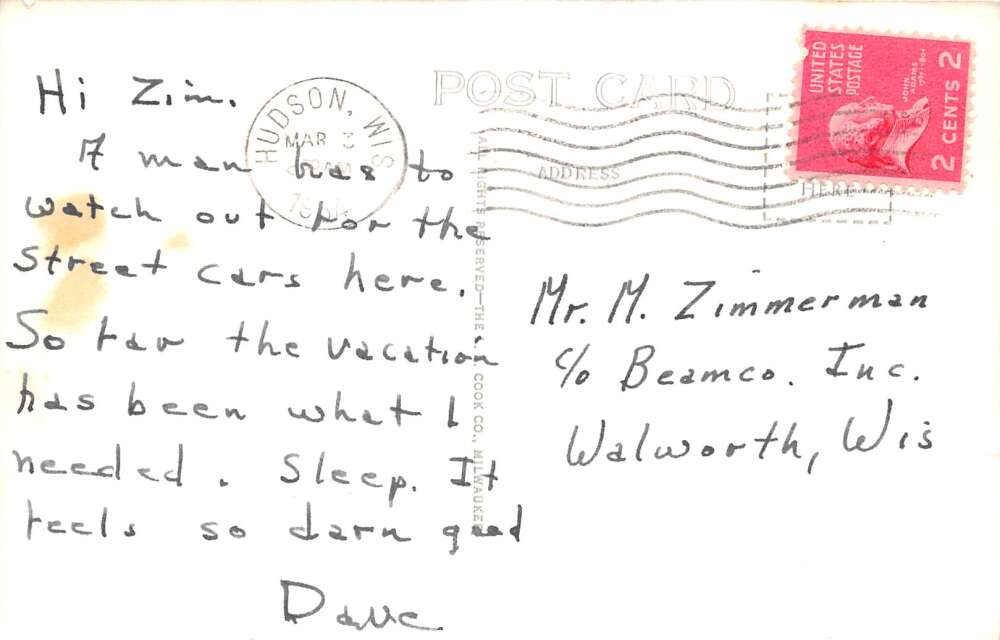 Hi Zim.
A man has to
watch out for the
Street cars here.
So far the vacation
has been what I
needed. Sleep. It
feels so darn good
Dave
POST CARD
ADDRESS
HERE
HUDSON, WIS
MAR 3
UNITED
STATES
POSTAGE
JOHN
ADAMS
1797-1801
2 CENTS 2
ALL RIGHTS RESERVED—THE COOK CO., MILWAUKEE
Mr. M. Zimmerman
c/o Beamco. Inc.
Walworth, Wis